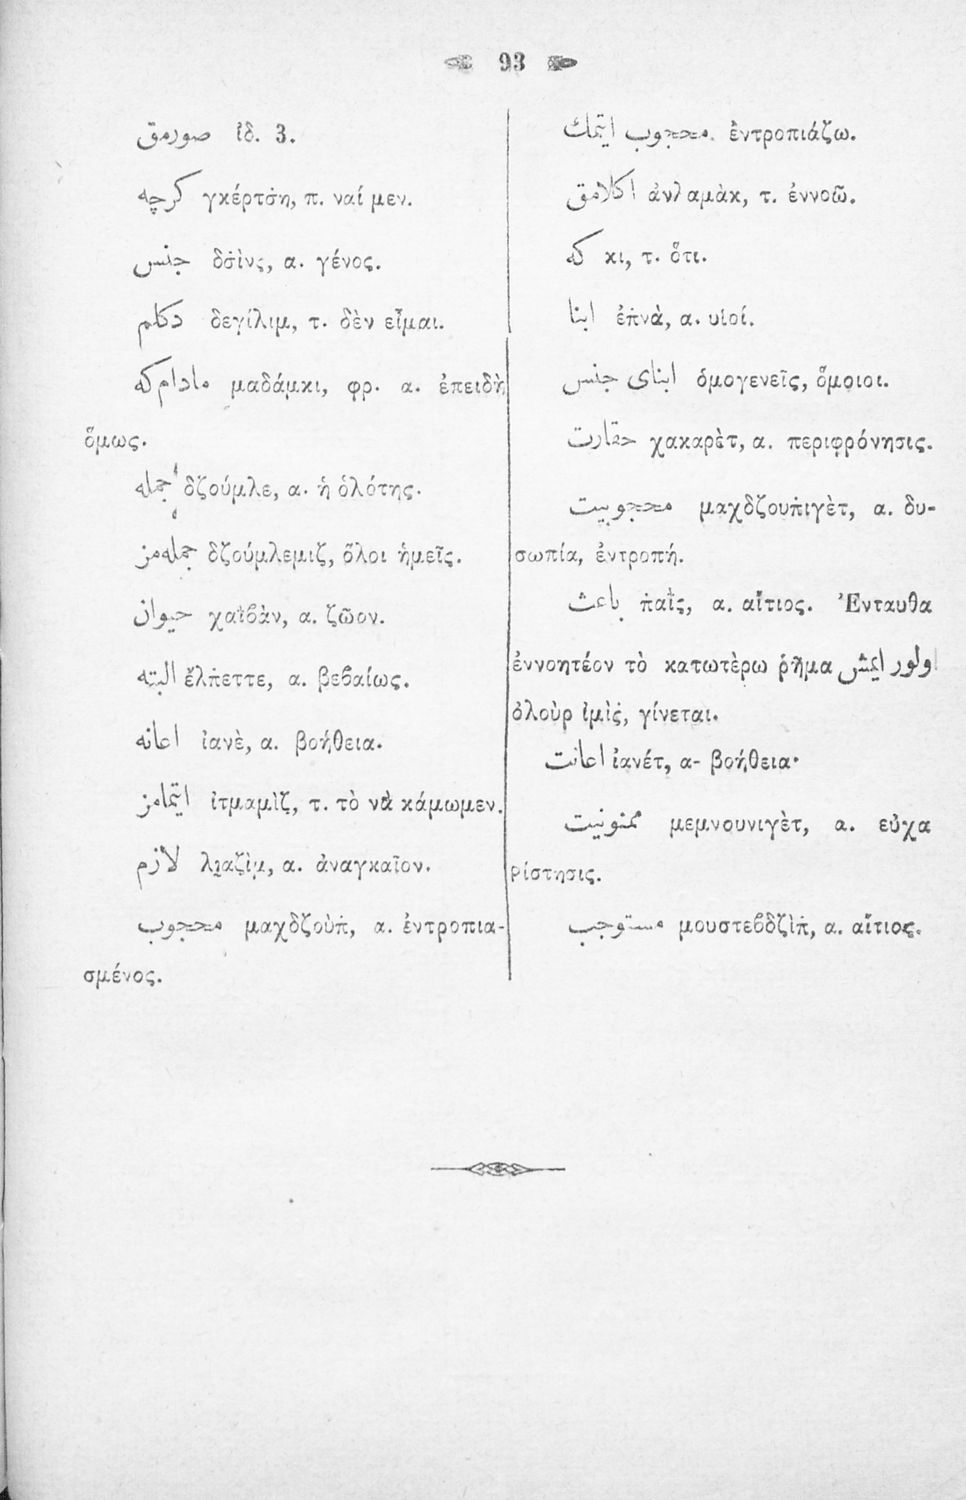 93
صورمق ἰδ. 3.
كرچه γκέρτσ̇η, π. ναί μεν.
جنس δσ̇ὶνς, α. γένος.
دكلم δεγίλιμ, τ. δὲν εἶμαι.
مادام كه μαδάμκι, φρ. α. ἐπειδὴ
ὅμως.
جمله δζούμλε, α. ἡ ὁλότης.
جمله‌مز δζούμλεμιζ, ὅλοι ἡμεῖς.
حيوان χαϊβὰν, α. ζῶον.
البته ἔλπ̇εττε, α. βεβαίως.
اعانه ἰανὲ, α. βοήθεια.
ايتمامز ἰτμαμὶζ, τ. τὸ νὰ κάμωμεν.
لازم λιαζὶμ, α. ἀναγκαῖον.
محجوب μαχδζοὺπ̇, α. ἐντροπια-
σμένος.
محجوب ايتمك ἐντροπιάζω.
اكلامق ἀνλαμὰκ, τ. ἐννοῶ.
كه κι, τ. ὅτι.
ابنا ἐπ̇νὰ, α. υἱοί.
ابناى جنس ὁμογενεῖς, ὅμοιοι.
حقارت χακαρὲτ, α. περιφρόνησις.
محجوبيت μαχδζουπ̇ιγὲτ, α. δυ-
σωπία, ἐντροπή.
باعث π̇αῒς, α. αἴτιος. Ἐνταυθα
ἐννοητέον τὸ κατωτὲρω ῥῆμα اولور ايمش
ὀλοὺρ ἰμὶσ̇, γίνεται.
اعانت ἰανέτ, α- βοήθεια·
ممنونيت μεμνουνιγὲτ, α. εὐχα
ρίστησις.
مستوجب μουστεβδζὶπ̇, α. αἴτιος.